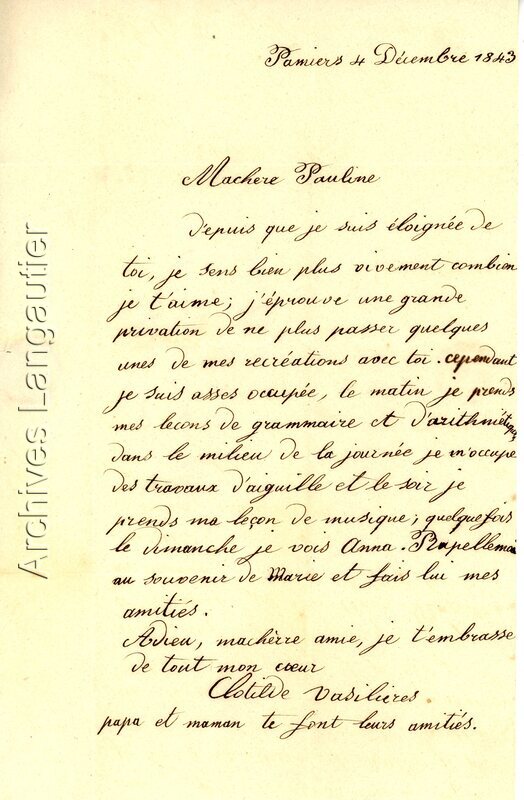 Pamiers 4 Décembre 1843
Machere Pauline
Depuis que je suis éloignée de
toi, je sens bien plus vivement combien
je t'aime; j'éprouve une grande
privation de ne plus passer quelques
unes de mes recréations avec toi. cependant
je suis asses occupée, le matin je prends
mes lecons de grammaire et d'arithmétique
dans le milieu de la journée je m'occupe
des travaux d'aiguille et le soir je
prends ma leçon de musique; quelquefois
le dimanche je vois Anna. Rapellemoi
au souvenir de Marie et fais lui mes
amitiés.
Adieu, machèrre amie, je t'embrasse
de tout mon cœur
Clotilde Vasilières
papa et maman te font leurs amitiés.
Archives Langautier